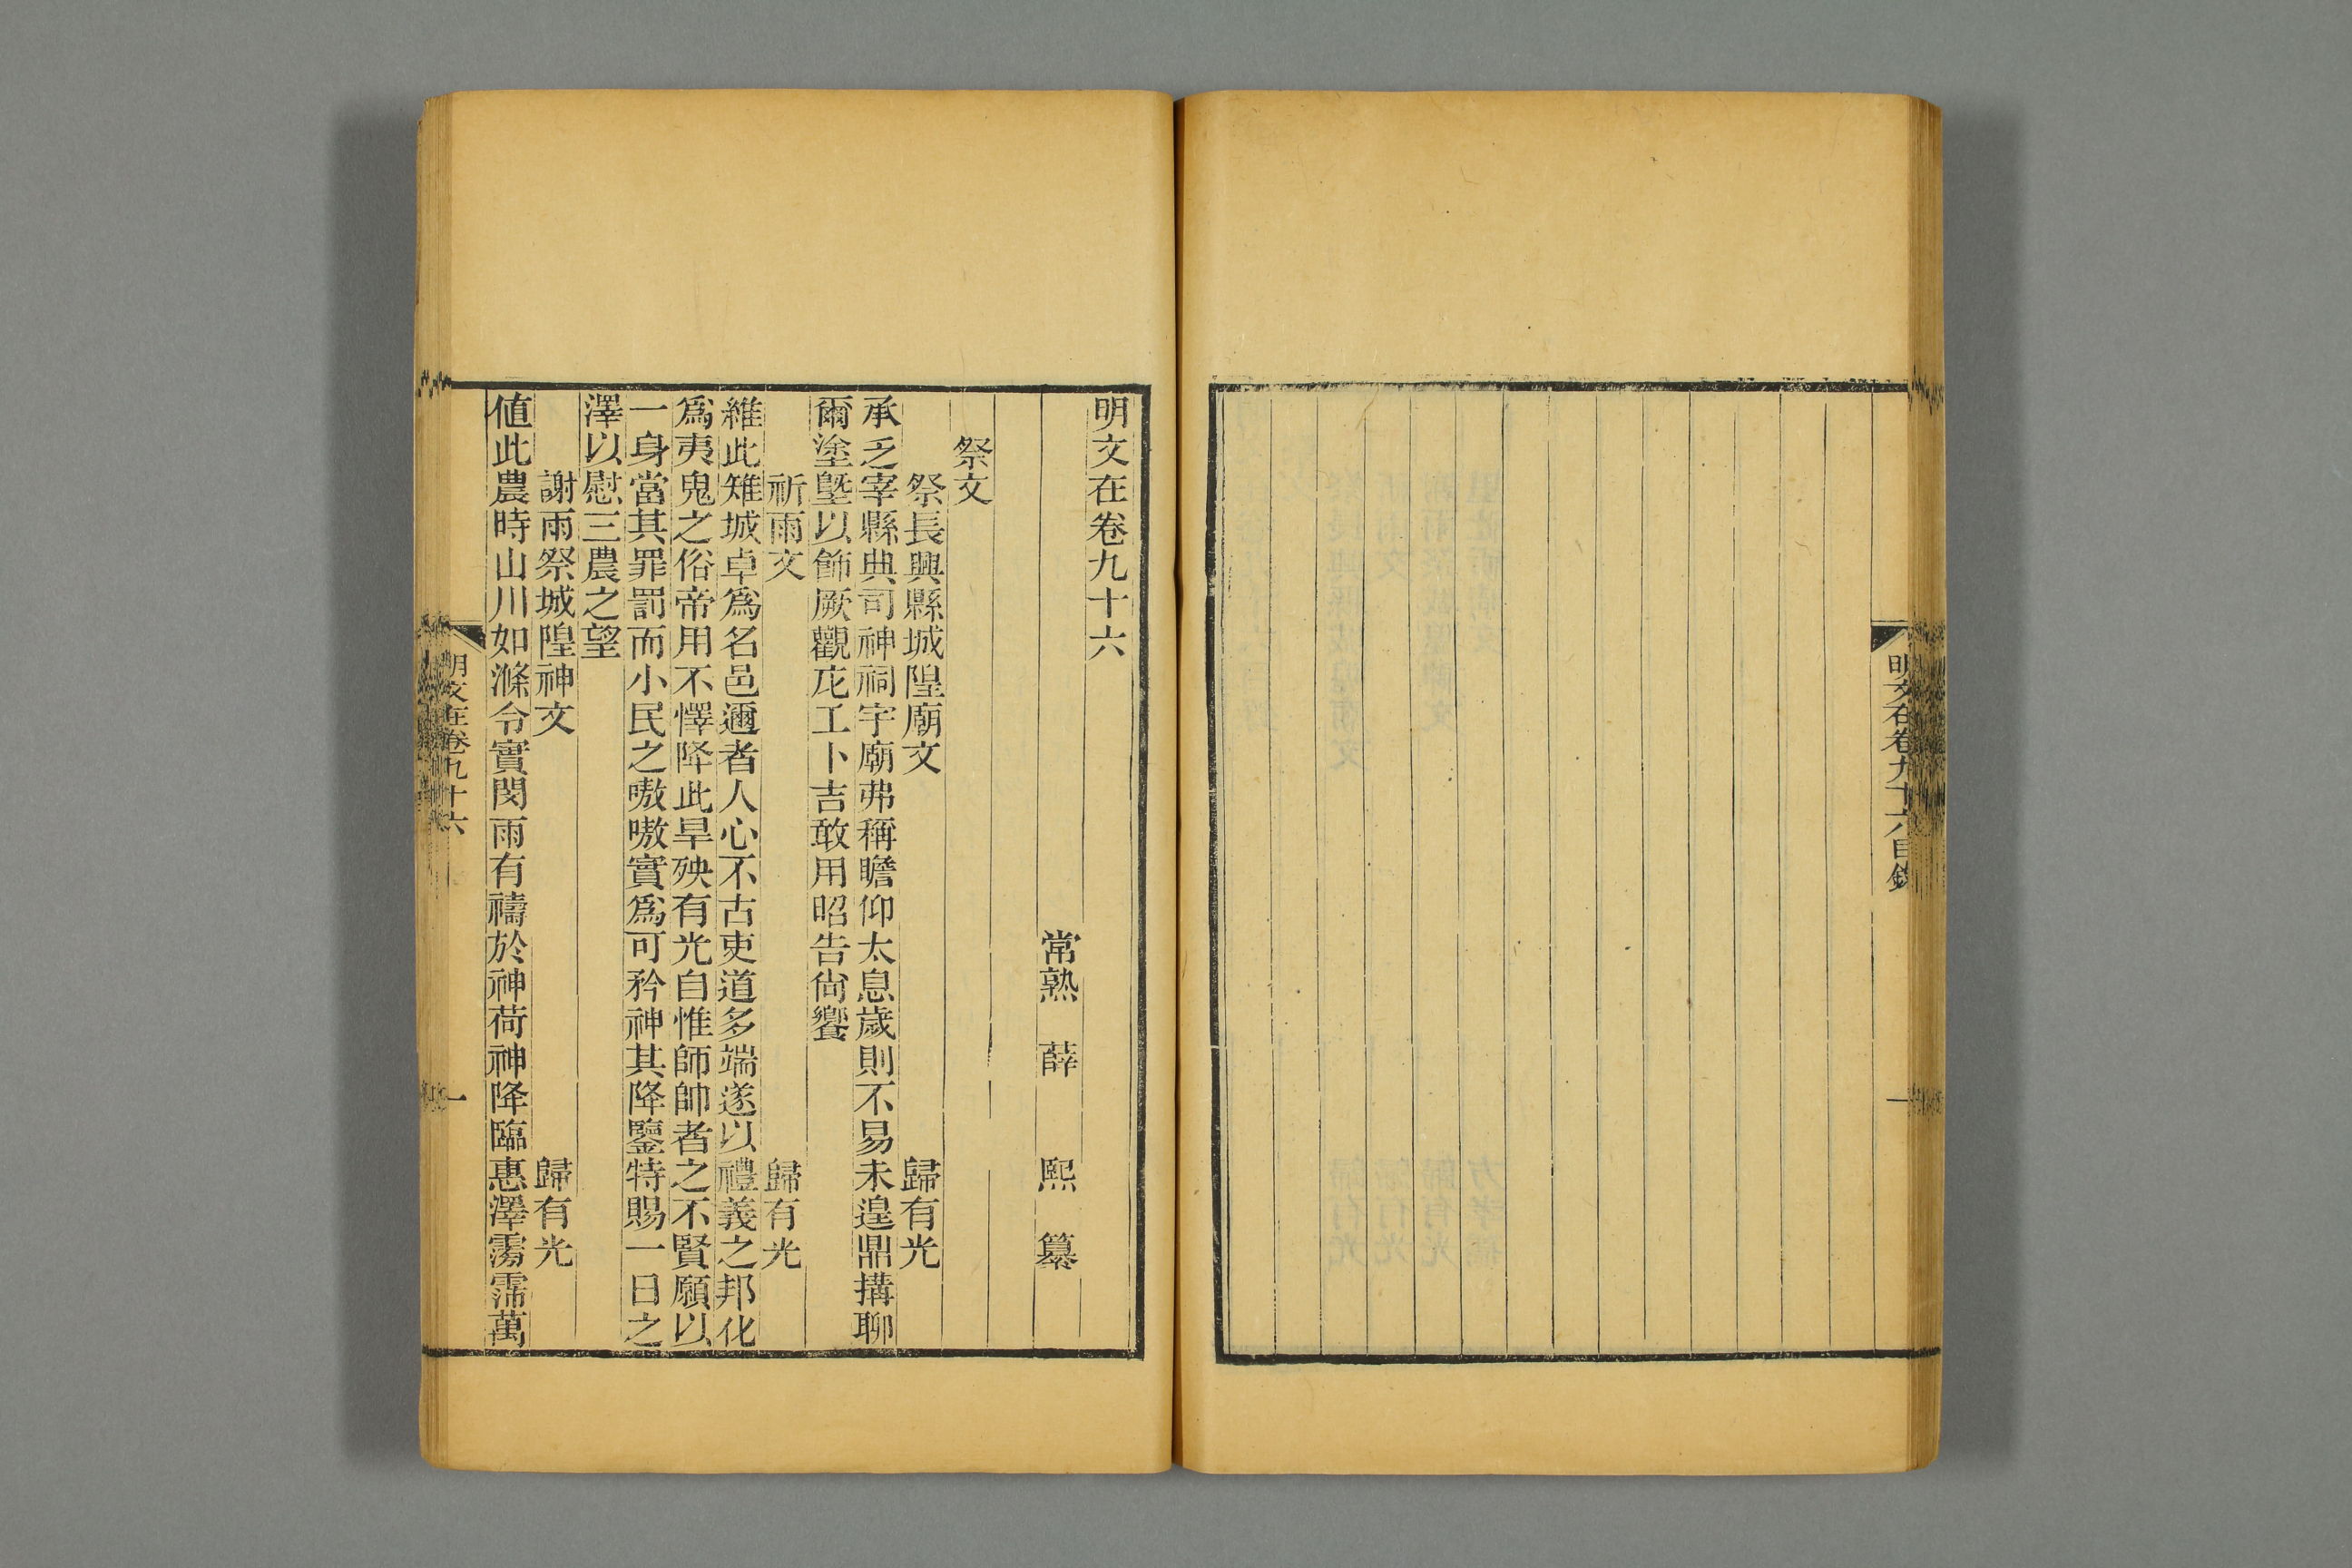 明文在卷九十六目錄
一
明文在卷九十六
常熟 薛 熙 纂
祭文
祭長興縣城隍廟文 歸有光
承乏宰縣典司神祠宇廟弗稱瞻仰太息歲則不易未遑鼎搆聊
爾塗墍以飾厥觀庀工卜吉敢用昭告尙饗
祈雨文 歸有光
維此雉城卓爲名邑邇者人心不古吏道多端遂以禮義之邦化
爲夷鬼之俗帝用不懌降此旱殃有光自惟師帥者之不賢願以
一身當其罪罰而小民之嗷嗷實爲可矜神其降鑒特賜一日之
澤以慰三農之望
謝雨祭城隍神文 歸有光
値此農時山川如滌令實閔雨有禱於神荷神降臨惠澤霶霈萬
明文在卷九十六
一